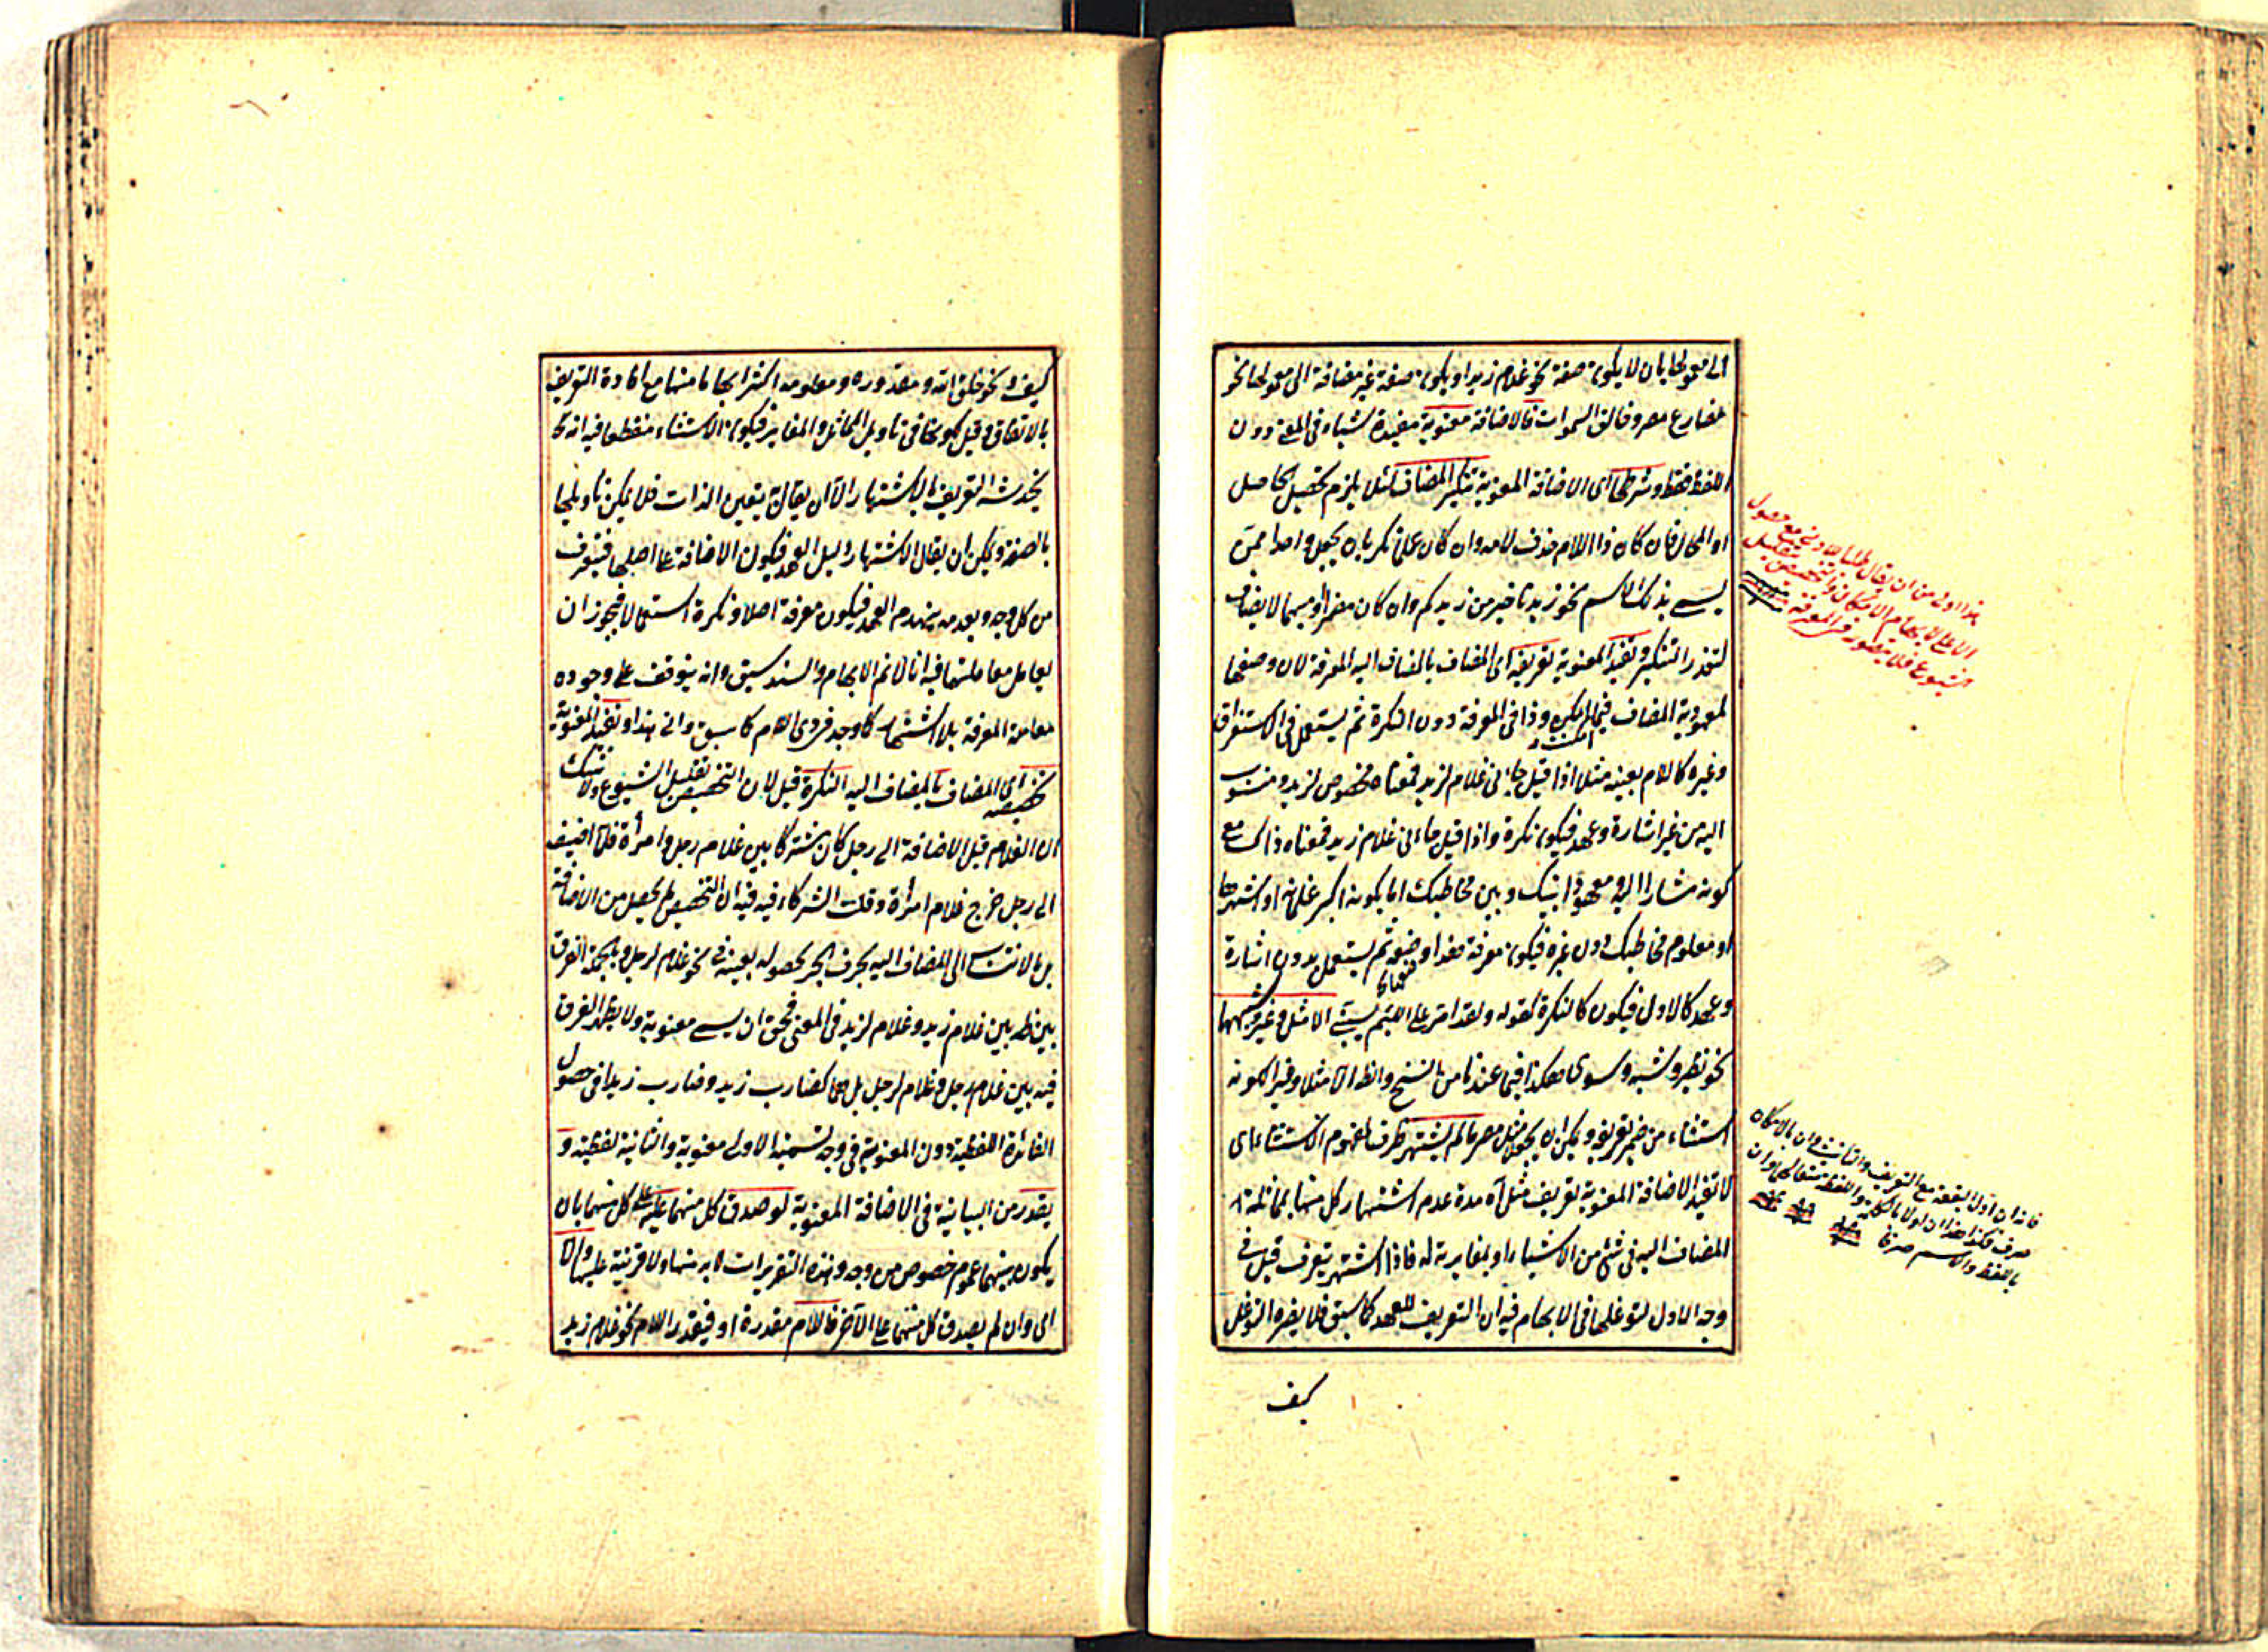 الى معمولها بان لا يكون صفة نحو غلام زيد او يكون صفة غير مضافة الى معمولها نحو
مضارع مصر وخالق السموات فالاضافة معنوية مفيدة شياء فى المعنى دون
اللفظ فقط وشرطها اى الاضافة المعنوية تنكير المضاف لئلا يلزم تحصيل الحاصل
او المحال فان كان ذا اللام حذف لامه وان كان علما نكر بان يجعل واحدا ممن
يسمى بذلك الاسم نحو زيدنا خير من زيدكم وان كان مضمرا او مبهما لا يضاف
لتعذر التنكير وتفيد المعنوية تعريفه اى المضاف بالمضاف اليه المعرفة لان وضعها
لمعهودية المضاف وذا فى المعرفة دون النكرة ثم يستعمل فى الاستغراق
وغيره كاللام بعينه مثلا اذا قيل جاءنى غلام لزيد فمعناه مخصوص لزيد ومنسوب
اليه من غير اشارة وعهد فيكون نكرة واذا قيل جاءنى غلام زيد فمعناه ذاك مع
كونه مشارا اليه ومعهودا بينك وبين مخاطبك اما بكونه اكبر غلمانه او اشهرها
او معلوم مخاطبك دون غيره فيكون معرفة هذا وضعه ثم يستعمل بدون اشارة
وعهد كالاول فيكون كالنكرة كقوله ولقد امر على اللئيم يسبنى الا مثل وغير وشبهها
نحو نظير وشبه وسوى هكذا فيما عندنا من النسخ والظ الا مثلا وغيرا لكونه
استثناء من ضمير تعريفه ويمكن ان يجعل مثل مصر ما لم يشتهر ظرف لمفهوم الاستثناء اى
لا تفيد الاضافة المعنوية تعريف مثل آه مدة عدم اشتهار كل منها بمماثلة
المضاف اليه فى شئ من الاشياء او بمغايرته له فاذا اشتهر يتعرف قيل فى
وجه الاول لتوغلها فى الابهام فيه ان التعريف للعهد كما سبق فلا يضره التوغل
كيف
هذا اولى من ان يقال طلبا للادنى مع حصول
الاعلى
شيوع فلا يتصور فى المعرفة
كيف ونحو خلق الله ومقدوره ومعلومه اكثر ابهاما منها مع افادة التعريف
بالاتفاق وقيل كونها فى تاويل المماثل والمغاير فيكون الاستثناء منقطعا فيه انه
يخدشه التعريف بالاشتهار الا ان يقال يتعين الذات فلا يمكن تاويلها
بالصفة ويمكن ان يقال الاشتهار دليل العهد فيكون الاضافة على اصلها فيتعرف
من كل وجه وبعدمه ينهدم العهد فيكون معرفة اصلا ونكرة استعمالا فيجوز ان
يعامل معاملتهما فيه انا لا نم الابهام والسند سبق وانه يتوقف على وجوده
معاملة المعرفة بلا اشتهار كما وجد فى ذى اللام كما سبق وانى هذا وتفيد المعنوية
تخصيصه اى المضاف بالمضاف اليه النكرة قيل لان التخصيص تقليل الشيوع ولا شك
ان الغلام قبل الاضافة الى رجل كان مشتركا بين غلام رجل وامرأة فلما اضيف
الى رجل خرج غلام امرأة وقلت الشركاء فيه فيه ان التخصيص لم يحصل من الاضافة
بل بالانتساب الى المضاف اليه بحرف الجر لحصوله بعينه فى نحو غلام لرجل وبالجملة الفرق
بين ظهر بين غلام زيد وغلام لزيد فى المعنى فحق ان يسمى معنوية ولا يظهر الفرق
فيه بين غلام رجل وغلام لرجل بل هما كضارب زيد وضارب زيدا فى حصول
الفائدة اللفظية دون المعنوية فى وجه تسمية الاولى معنوية والثانية لفظية و
يقدر من البيانية فى الاضافة المعنوية لو صدق كل منهما على كل منهما بان
يكون بينهما عموم خصوص من وجه وهذه التقريرات لا بد منها ولا قرينة عليها والا
اى وان لم يصدق كل منهما على الآخر فاللام مقدرة او فيقدر اللام نحو غلام زيد